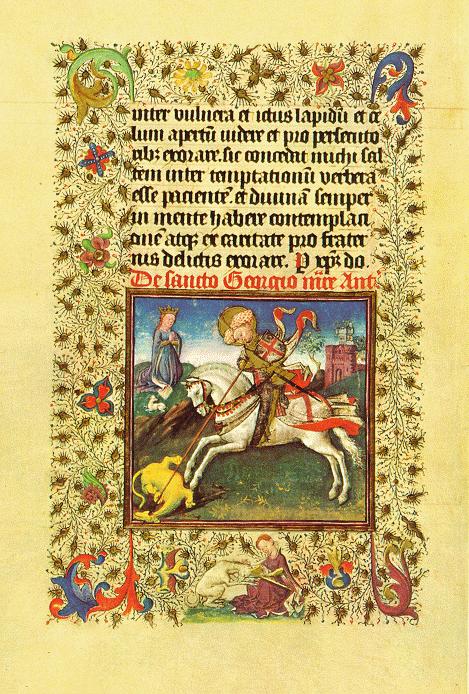 inter vulnera et ictus lapidū et ce
lum apertū uidere et pro persecuto
ribꝫ exorare. sic concedat michi sal
tem inter temptationū verbera
esse pacientē et diuinā semper
in mente habere contemplaci
onē atqꝫ ex caritate pro frater
nis delictis exorare. P xp̄r do.
De sancto Georgio mr̄e Antᵃ